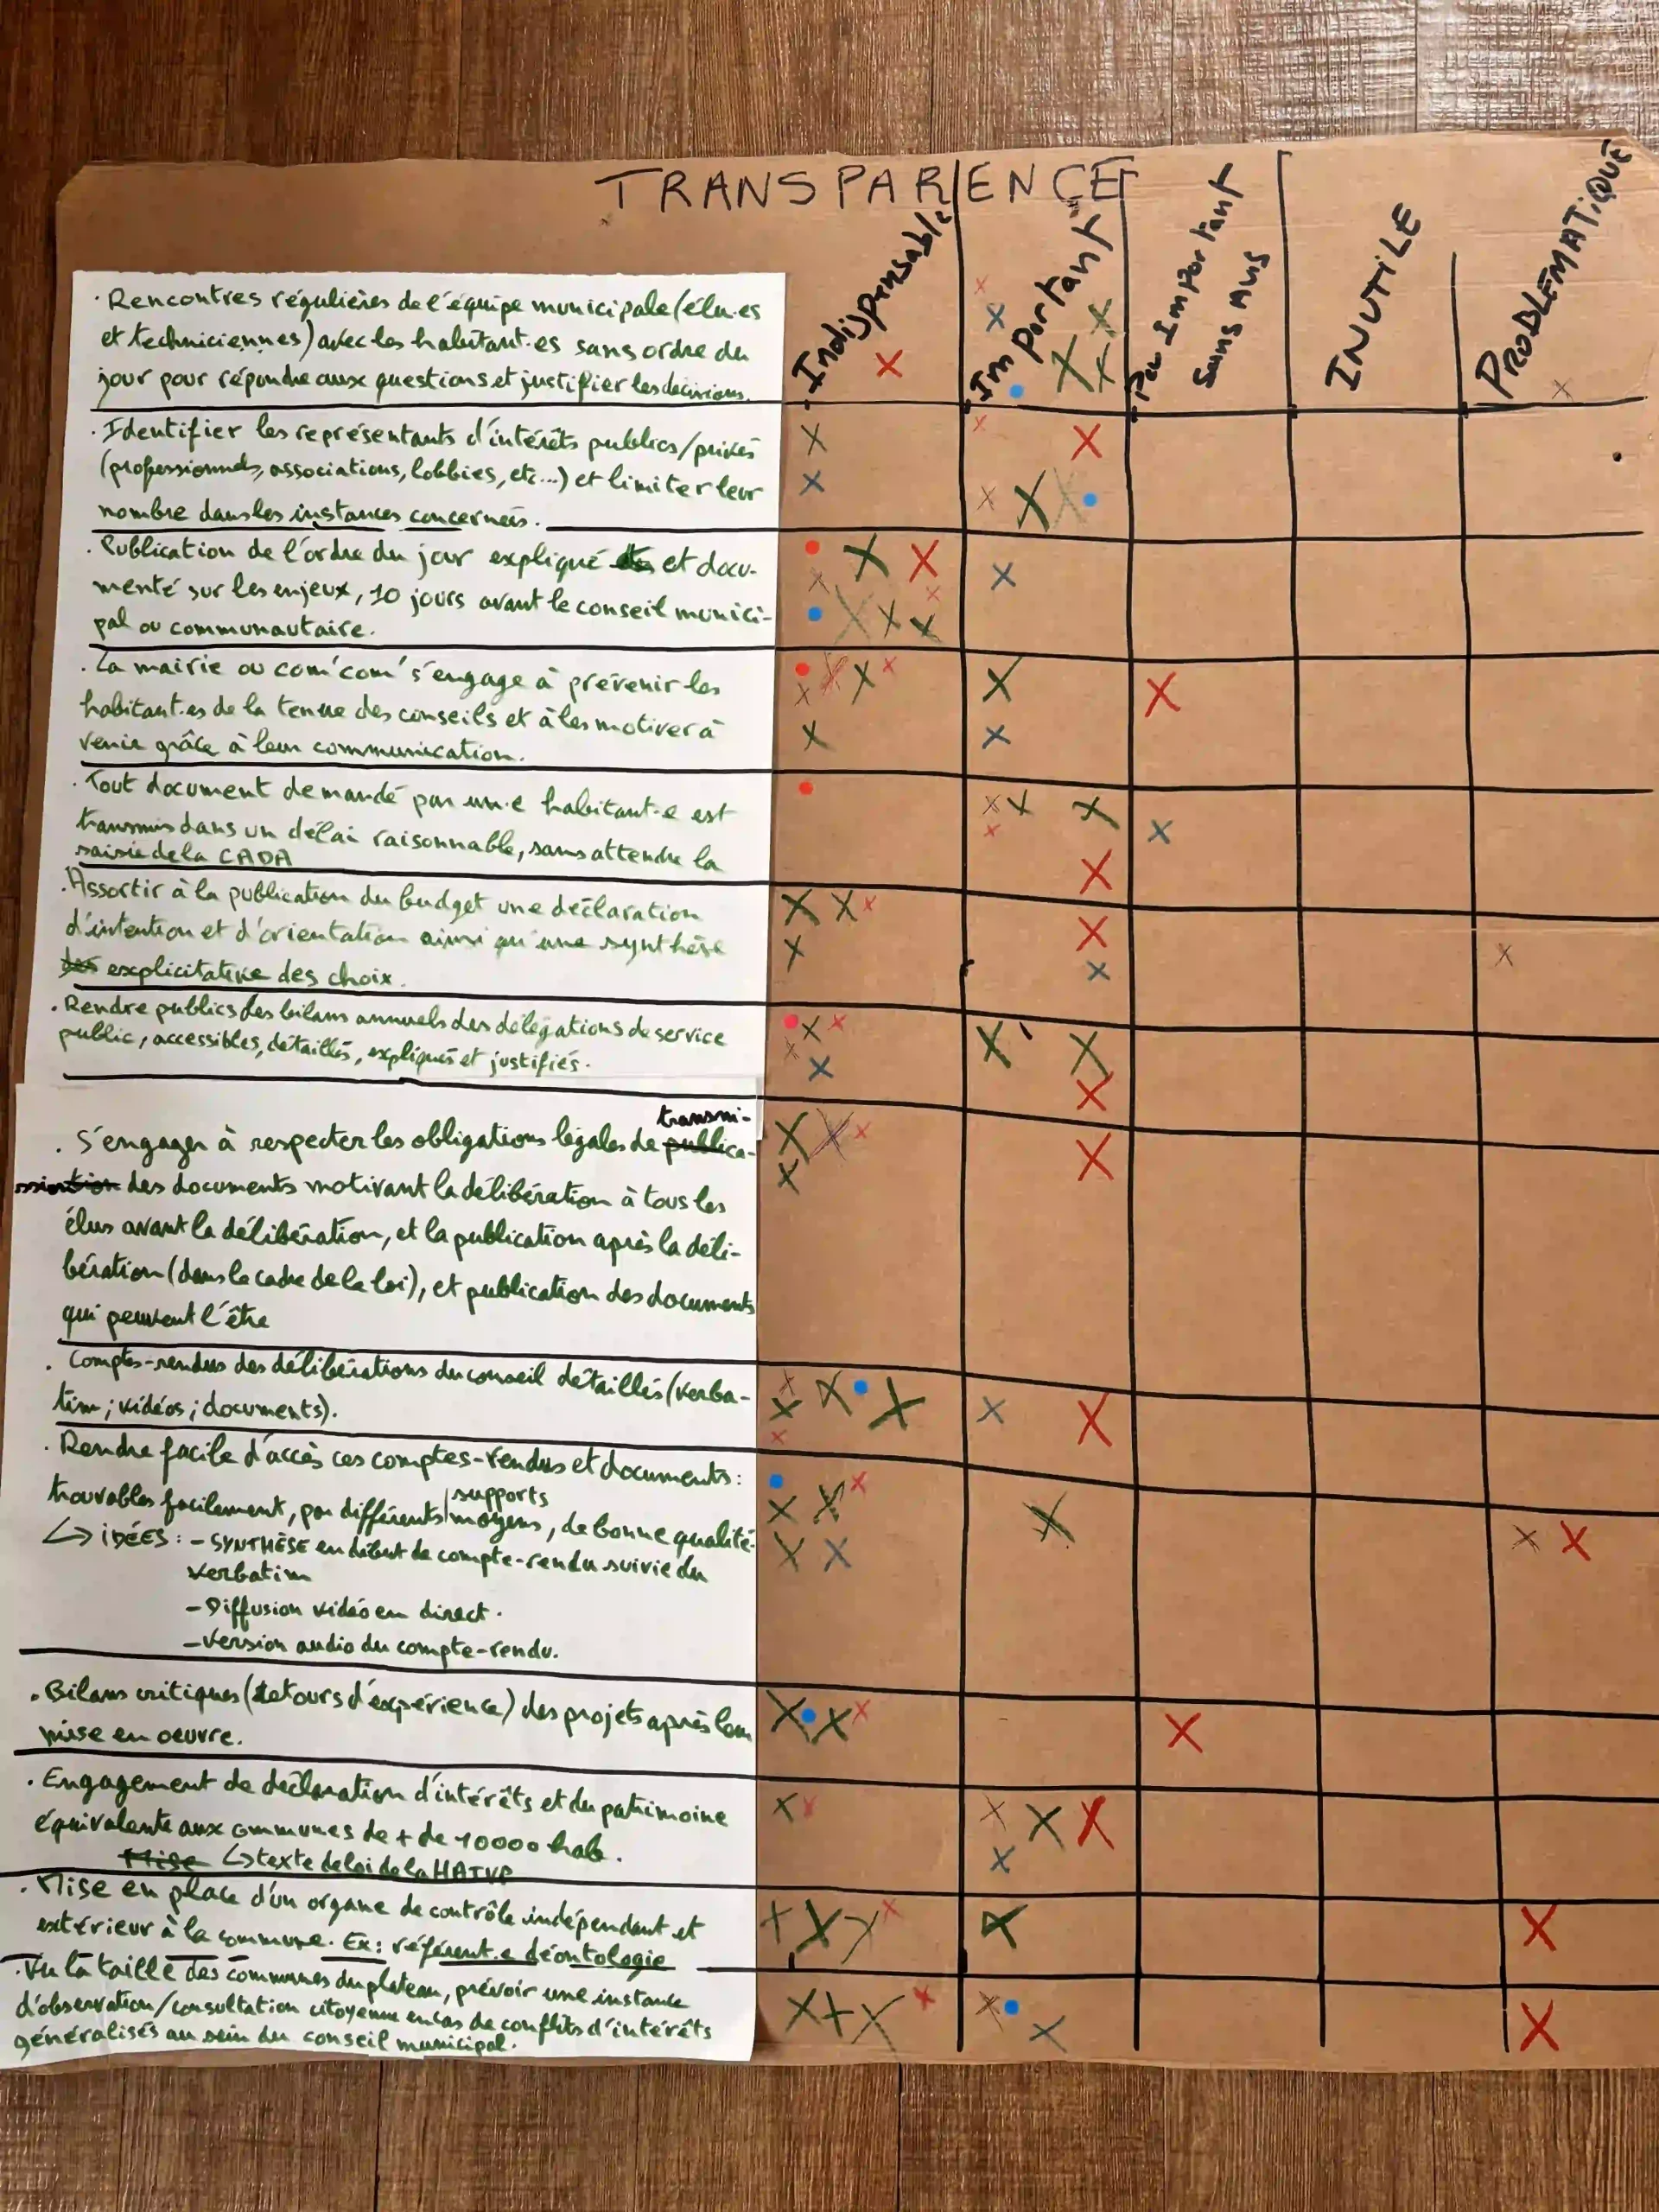 TRANSPARENCE
Indispensable
Important
Peu Important
Sans Avis
INUTILE
PROBLÉMATIQUE
· Rencontres régulières de l'équipe municipale (élu·es
et techniciennes) avec les habitant·es sans ordre du
jour pour répondre aux questions et justifier les décisions.
· Identifier les représentants d'intérêts publics/privés
(professionnels, associations, lobbies, etc...) et limiter leur
nombre dans les instances concernées.
· Publication de l'ordre du jour expliqué et docu-
menté sur les enjeux, 10 jours avant le conseil munici-
pal ou communautaire.
· La mairie ou com'com' s'engage à prévenir les
habitant·es de la tenue des conseils et à les motiver à
venir grâce à leur communication.
· Tout document demandé par un·e habitant·e est
transmis dans un délai raisonnable, sans attendre la
saisie de la CADA
· Assortir à la publication du budget une déclaration
d'intention et d'orientation ainsi qu'une synthèse
des explicitative des choix.
· Rendre publics les bilans annuels des délégations de service
public, accessibles, détaillés, expliqués et justifiés.
transmi-
· S'engager à respecter les obligations légales de publica-
ssion des documents motivant la délibération à tous les
élus avant la délibération, et la publication après la déli-
bération (dans le cadre de la loi), et publication des documents
qui peuvent l'être
· Comptes-rendus des délibérations du conseil détaillés (verba-
tim ; vidéos ; documents).
· Rendre facile d'accès ces comptes-rendus et documents :
supports
trouvables facilement, par différents moyens, de bonne qualité.
↳ IDÉES : - SYNTHÈSE en début de compte-rendu suivie du
verbatim
- Diffusion vidéo en direct.
- Version audio du compte-rendu.
· Bilans critiques (retours d'expérience) des projets après leur
mise en oeuvre.
· Engagement de déclaration d'intérêts et du patrimoine
équivalente aux communes de + de 10000 hab.
Mise ↳ texte de loi de la HATVP
· Mise en place d'un organe de contrôle indépendant et
extérieur à la commune. Ex : référent·e déontologie
· Vu la taille des communes du plateau, prévoir une instance
d'observation/consultation citoyenne en cas de conflits d'intérêts
généralisés au sein du conseil municipal.